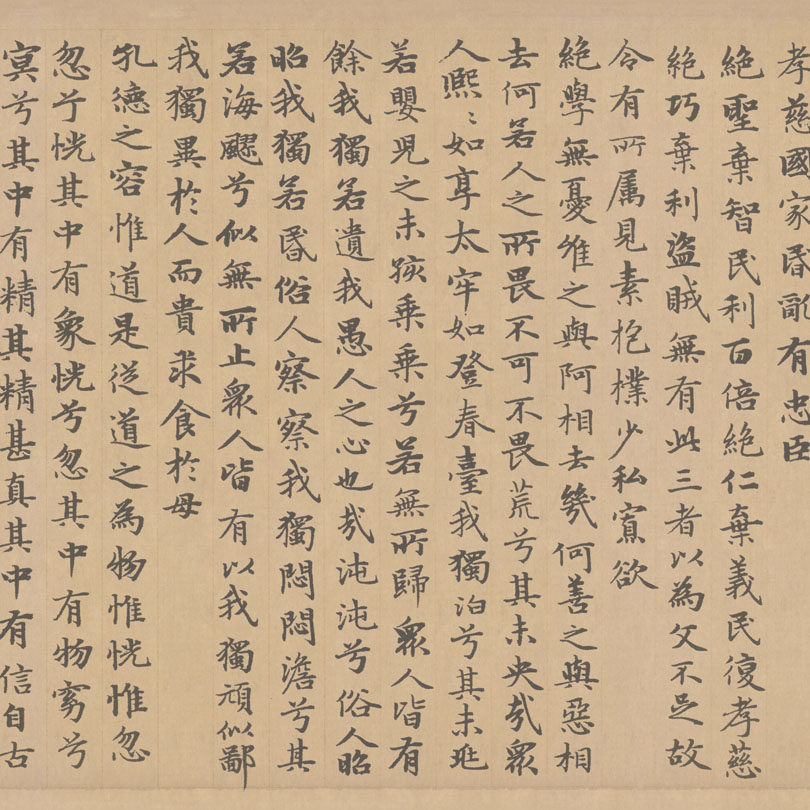 孝慈國家昏亂有忠臣
絶聖棄智民利百倍絶仁棄義民復孝慈
絶巧棄利盜賊無有此三者以為文不足故
令有所属見素抱樸少私寡欲
絶學無憂唯之與阿相去幾何善之與惡相
去何若人之所畏不可不畏荒兮其未央哉衆
人熙〻如享太牢如登春臺我獨泊兮其未兆
若嬰兒之未孩乗乗兮若無所歸衆人皆有
餘我獨若遺我愚人之心也哉沌沌兮俗人昭
昭我獨若昏俗人察察我獨悶悶澹兮其
若海飂兮似無所止衆人皆有以我獨頑似鄙
我獨異於人而貴求食於母
孔德之容惟道是從道之為物惟恍惟忽
忽兮恍其中有象恍兮忽其中有物窈兮
冥兮其中有精其精甚真其中有信自古